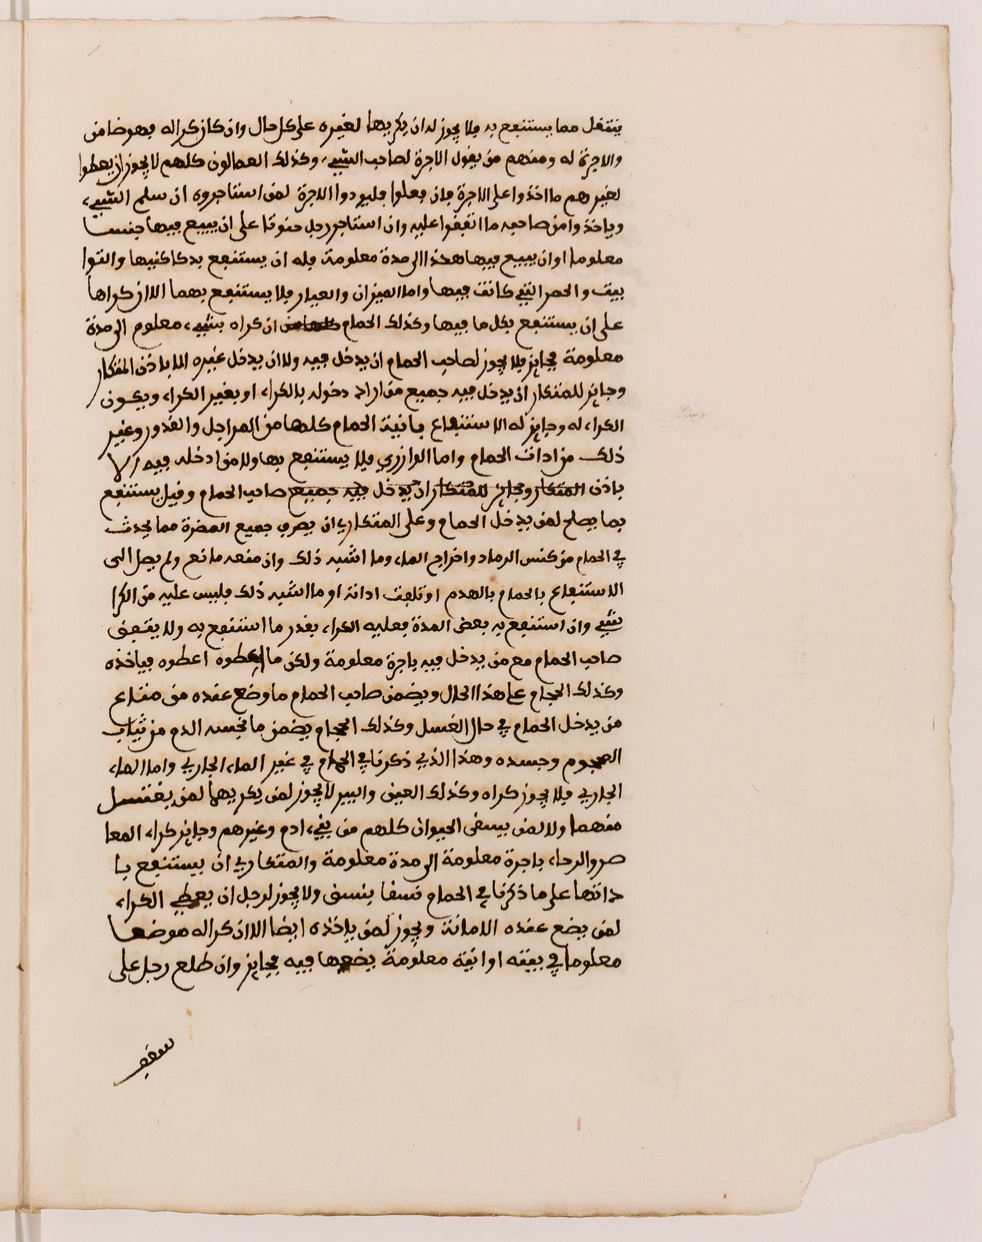 ينتقل مما يستنفع به فلا يجوز له ان يكريها لغيره على كل حال وان كان كراله فهو ضامن
والاجرة له ومنهم من يقول الاجرة لصاحب الشيء وكذلك العمالون كلهم لا يجوز ان يعطوا
لغيرهم ما اخذوا على الاجرة فان فعلوا فليودوا الاجرة لمن استاجروه ان سلم الشيء
وياخذوا من صاحبه ما اتفقوا عليه وان استاجر رجل حنوتا على ان يبيع فيها جنسا
معلوما او ان يبيع فيها هكذا الى مدة معلومة فله ان يستنفع بدكاكنيها والتوا
بيت و الحصر التي كانت فيها واما الميزان والعيار فلا يستنفع بهما الا ان كراها
على ان يستنفع بكل ما فيها وكذلك الحمام ان كراه بشيء معلوم الى مدة
معلومة فجايز فلا يجوز لصاحب الحمام ان يدخل فيه ولا ان يدخل غيره الا باذن المتكار
وجايز للمتكار ان يدخل فيه جميع من اراد دخوله بالكراء او بغير الكراء ويكون
الكراء له وجايز له الاستنفاع بانية الحمام كلها من المراجل والقدور وغير
ذلك من ادات الحمام واما الوازري فلا يستنفع بها ولا من ادخله فيه الا
باذن المتكار وجايز للمتكار ان يدخل فيه جميع صاحب الحمام وقيل يستنفع
بما يصلح لمن يدخل الحمام وعلى المتكاري ان يصرف جميع المضرة مما يحدث
في الحمام من كنس الرماد واخراج الماء وما اشبه ذلك وان منعه مانع ولم يصل الى
الاستنفاع بالحمام بالهدم او تلفت اداته او ما اشبه ذلك فليس عليه من الكرا
شيء وان استنفع به بعض المدة فعليه الكراء بقدر ما استنفع به ولا يتفق
صاحب الحمام مع من يدخل فيه باجرة معلومة ولكن ما اعطوه فياخذه
وكذلك الحجام على هذا الحال ويضمن صاحب الحمام ما وضع عنده من متاع
من يدخل الحمام في حال الغسل وكذلك الحجام يضمن ما نجسه الدم من ثياب
المحجوم وجسده وهذا الذي ذكرنا في الحمام في غير الماء الجاري واما الماء
الجاري فلا يجوز كراه وكذلك العين والبير لا يجوز لمن يكريهما لمن يغتسل
منهما ولا لمن يسقى الحيوان كلهم من بني ادم وغيرهم وجايز كراء المعا
صر والرحاء باجرة معلومة الى مدة معلومة والمتكاري ان يستنفع با
داتها على ما ذكرنا في الحمام نسقا بنسق ولا يجوز لرجل ان يعطي الكراء
لمن يضع عنده الامانة ويجوز لمن ياخذه ايضا الا ان كراله موضعا
معلوما في بيته او انية معلومة يضعها فيه فجايز وان طلع رجل على